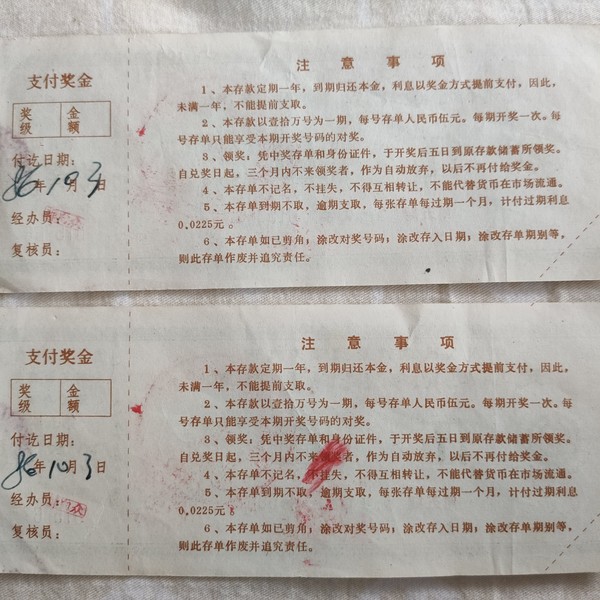 支付奖金
奖级 金额
付讫日期:
86年10月3日
经办员:
复核员:
注意事项
1、本存款定期一年，到期归还本金，利息以奖金方式提前支付，因此，
未满一年，不能提前支取。
2、本存款以壹拾万号为一期，每号存单人民币伍元。每期开奖一次。每
号存单只能享受本期开奖号码的对奖。
3、领奖：凭中奖存单和身份证件，于开奖后五日到原存款储蓄所领奖。
自兑奖日起，三个月内不来领奖者，作为自动放弃，以后不再付给奖金。
4、本存单不记名，不挂失，不得互相转让，不能代替货币在市场流通。
5、本存单到期不取，逾期支取，每张存单每过期一个月，计付过期利息
0.0225元。
6、本存单如已剪角；涂改对奖号码；涂改存入日期；涂改存单期别等，
则此存单作废并追究责任。
支付奖金
奖级 金额
付讫日期:
86年10月3日
经办员:
复核员:
注意事项
1、本存款定期一年，到期归还本金，利息以奖金方式提前支付，因此，
未满一年，不能提前支取。
2、本存款以壹拾万号为一期，每号存单人民币伍元。每期开奖一次。每
号存单只能享受本期开奖号码的对奖。
3、领奖：凭中奖存单和身份证件，于开奖后五日到原存款储蓄所领奖。
自兑奖日起，三个月内不来领奖者，作为自动放弃，以后不再付给奖金。
4、本存单不记名，不挂失，不得互相转让，不能代替货币在市场流通。
5、本存单到期不取，逾期支取，每张存单每过期一个月，计付过期利息
0.0225元。
6、本存单如已剪角；涂改对奖号码；涂改存入日期；涂改存单期别等，
则此存单作废并追究责任。